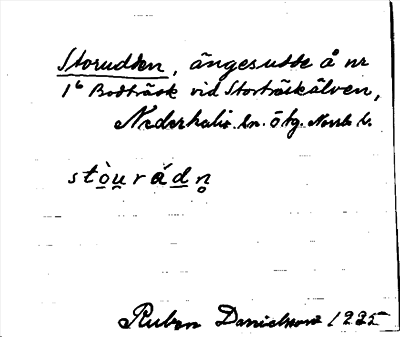 Storudden, ängesudde å nr
1⁶ Bodträsk vid Storträskälven,
Nederkalix sn. ötg. Norrb. l.
stòu̯rádn̥
Ruben Danielsson 1935